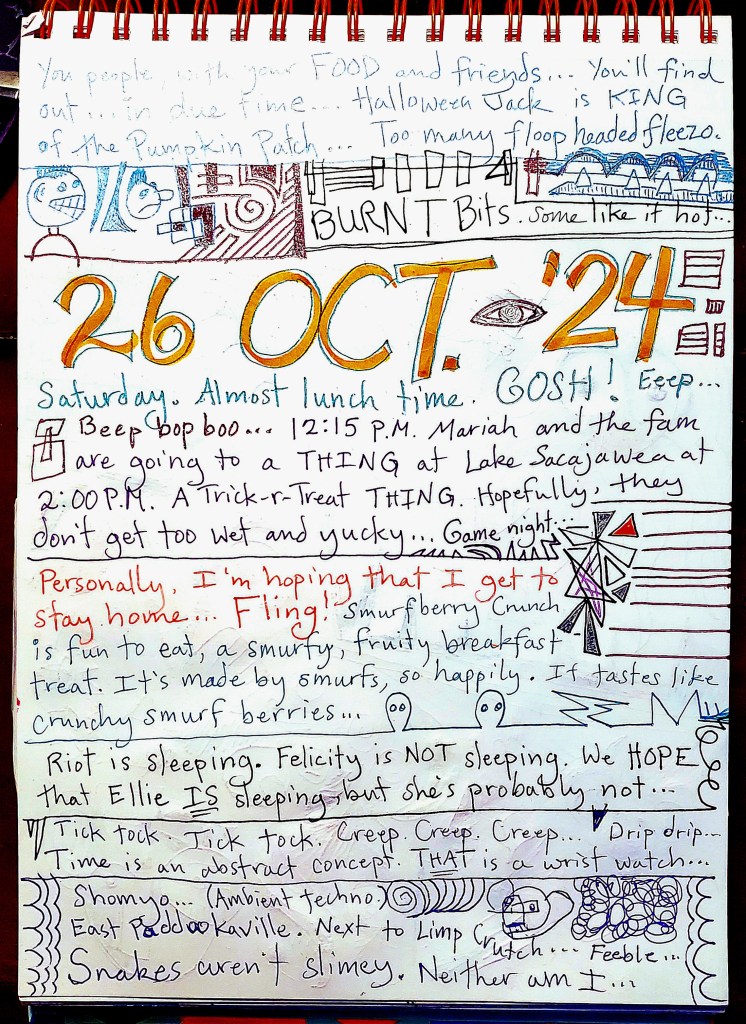 You people, with your FOOD and friends... You'll find
out... in due time... Halloween Jack is KING
of the Pumpkin Patch... Too many floop headed fleezo.
BURNT Bits. Some like it hot...
26 OCT. '24
Saturday. Almost lunch time. GOSH! Eeep...
Beep bop boo... 12:15 P.M. Mariah and the fam
are going to a THING at Lake Sacajawea at
2:00 P.M. A Trick-r-Treat THING. Hopefully, they
don't get too wet and yucky... Game night...
Personally, I'm hoping that I get to
stay home... Fling! Smurfberry Crunch
is fun to eat, a smurfy, fruity breakfast
treat. It's made by smurfs, so happily. It tastes like
crunchy smurf berries...
Riot is sleeping. Felicity is NOT sleeping. We HOPE
that Ellie IS sleeping, but she's probably not...
Tick tock. Tick tock. Creep. Creep. Creep... Drip drip...
Time is an abstract concept. THAT is a wrist watch...
Shomyo... (Ambient techno.)
East Paddookaville. Next to Limp Crutch... Feeble...
Snakes aren't slimey. Neither am I...